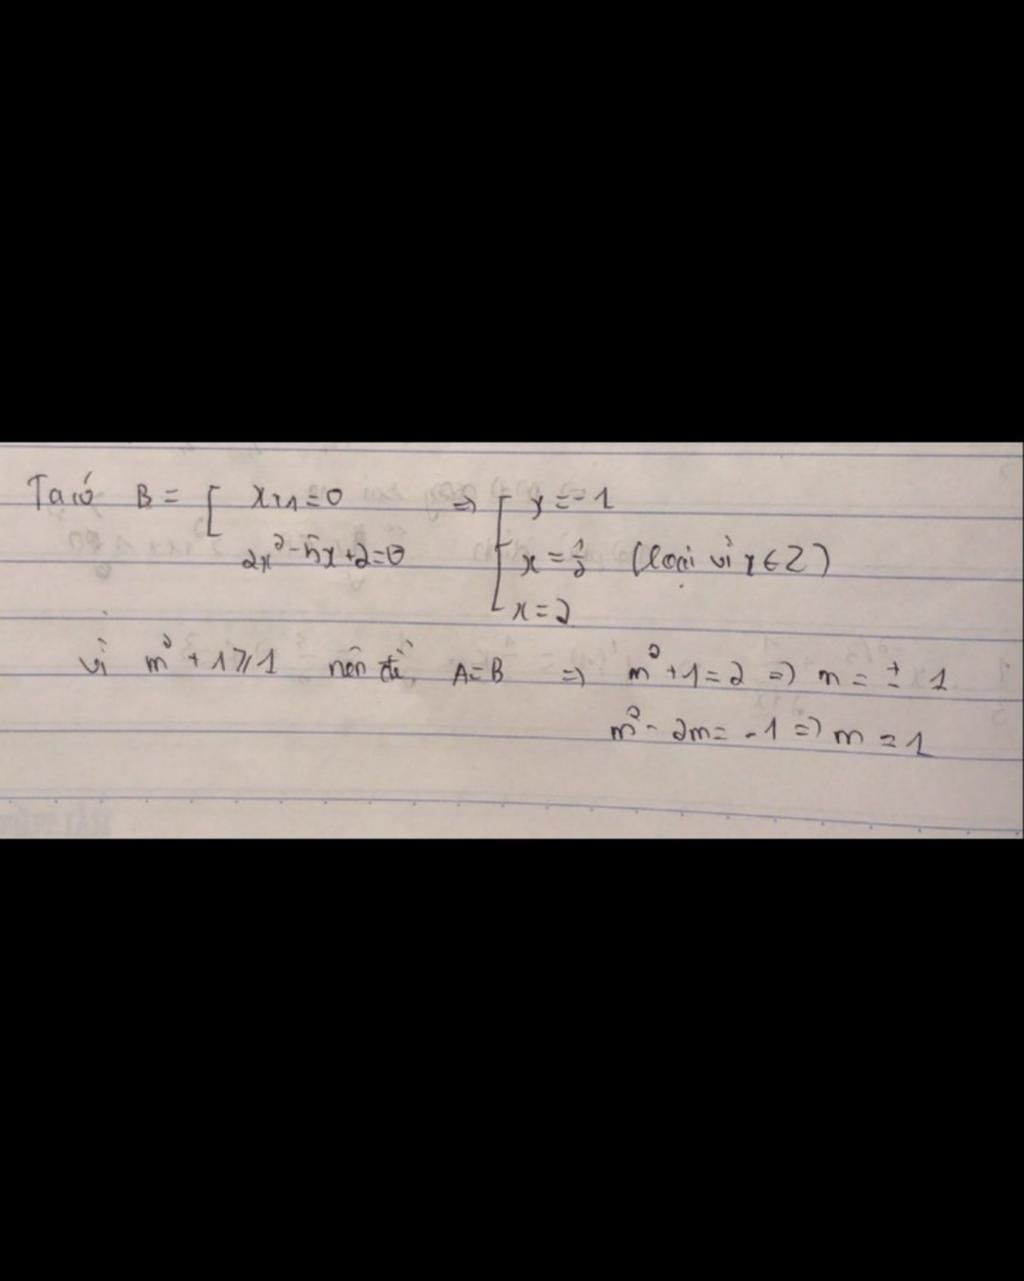 Ta có B = [ x+1=0 ⇒ [ x = -1
2x²-5x+2=0 x = 1/2 (loại vì x∈Z)
x=2
vì m²+1⩾1 nên để A=B ⇒ m²+1=2 ⇒ m = ± 1
m²-2m = -1 ⇒ m = 1